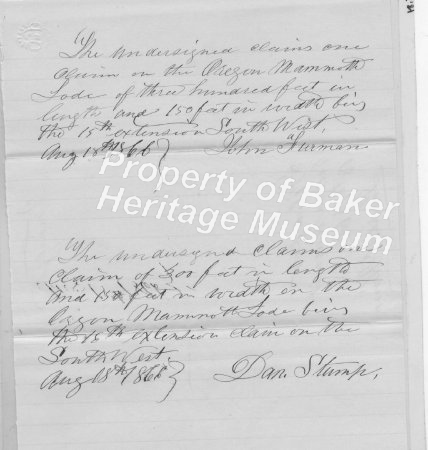 The undersigned claims one
claim on the Oregon Mammoth
Lode of three hundred feet in
length and 150 feet in width being
the 15th extension South West,
Aug 18th 1866 } John Furman
Property of Baker
Heritage Museum
The undersigned claims one
claim of 300 feet in length
and 150 feet in width, on the
Oregon Mammoth Lode being
the extension claim on the
South West.
Aug 18th 1866 } Dan. Stump,